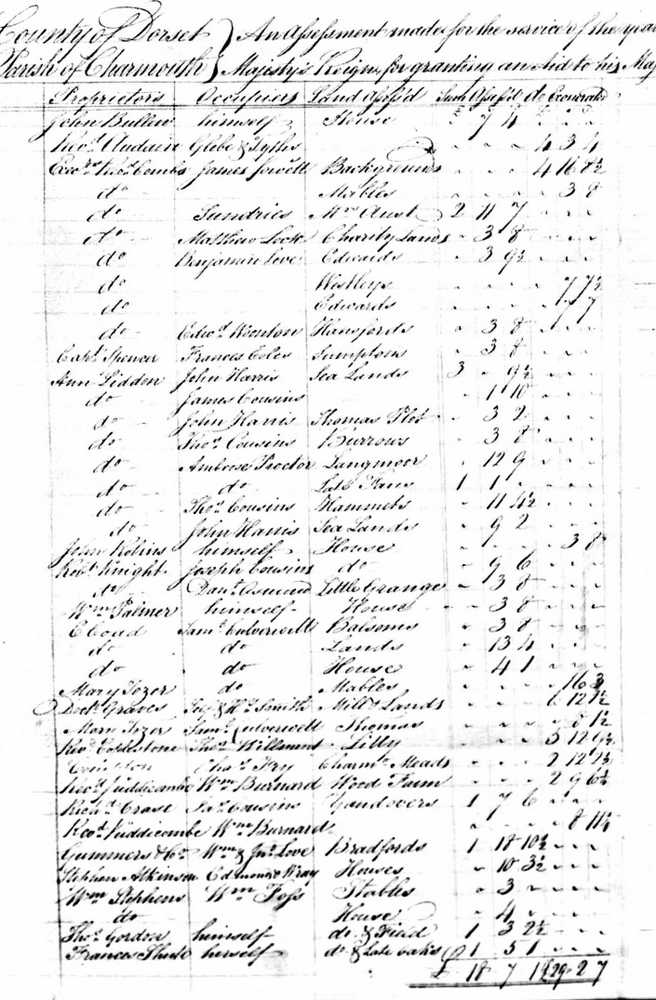 County of Dorset } An Assessment made for the service of the year
Parish of Charmouth } Majesty's Reign for granting an Aid to his Maj
Proprietors Occupiers Land assess'd Sum Assess'd do Exonerated
John Bullen himself House 7 4
Revd Glebe & Tythes 4 3 4
Exors Thos Combs James Backgrounds 4 16 8½
do Mables 3 8
do Sundries Mrs Aust 2 11 7
do Matthew Look Charity Lands 3 8
do Benjamin Love Edwards 3 9½
do Westleys 7 7½
do Edwards 1 7
do Edwd Hansfords 3 8
Captn Spencer Frances Coles Sumptons 3 8
Ann Liddon John Harris Sea Lands 3 9½
do James Cousins 1 10
do John Harris Thomas Plot 3 2
do Thos Cousins Burrows 3 8
do Ambrose Proctor Langmoor 12 9
do do Late 1 1
do Thos Cousins Hammets 11 4½
do John Harris Sea Lands 9 2
John himself House 3 8
Robt Knight Joseph Cousins do 9 6
do Danl Little Grange 3 8
Wm Palmer himself House 3 8
E Coad Saml Culverwell Balsoms 3 8
do do Lands 13 4
do do House 4 1
Mary Tozer do Mables 16 3
Doctr Graves Jas & Wm Smith Mill Lands 6 12 ½
Mary Tozer Saml Culverwell Thomas 8 1½
Revd Thos Lilly 3 12
Thos Fry Charmth Meads 2 12
Revd Puddicombe Wm Burnard Wood Farm 2 9 6½
Richd Jas Cousins 1 7 6
Revd Puddicombe Wm Burnard 8 11½
Gummers & Co Wm & Jno Love Bradfords 1 18 10½
Stephen Atkinson Edmund Wray Houses 10 3½
Wm Stephens Wm Foss Stables 3
do House 4
Thos Gordon himself do & Field 1 3 2½
Frances herself do & Late Oaks 1 5 1
£ 18 7 1½ 29 2 7